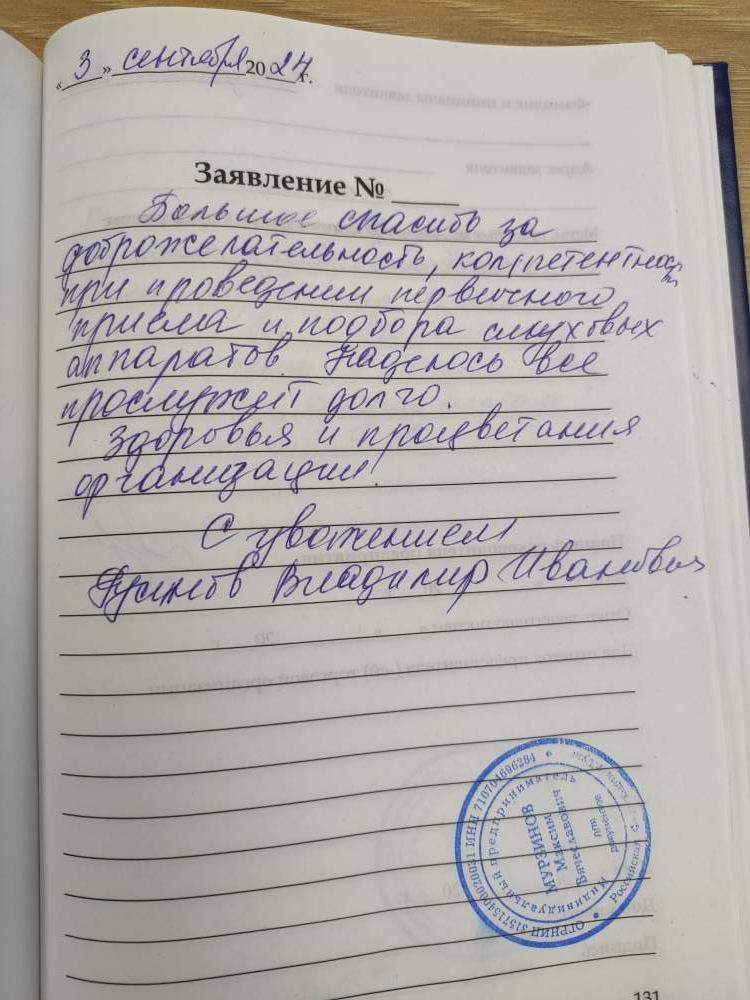 «3» сентября 2024 г.
Заявление №
Большое спасибо за
доброжелательность, компетентность
при проведении первичного
приема и подбора слуховых
аппаратов. Надеюсь все
прослужит долго.
Здоровья и процветания
организации.
С уважением
Владимир Иванович
Индивидуальный предприниматель
МУРЗИНОВ
Максим
Вячеславович
Для
документов
ОГРНИП 315715400020931 ИНН 710704696284
Российская
131